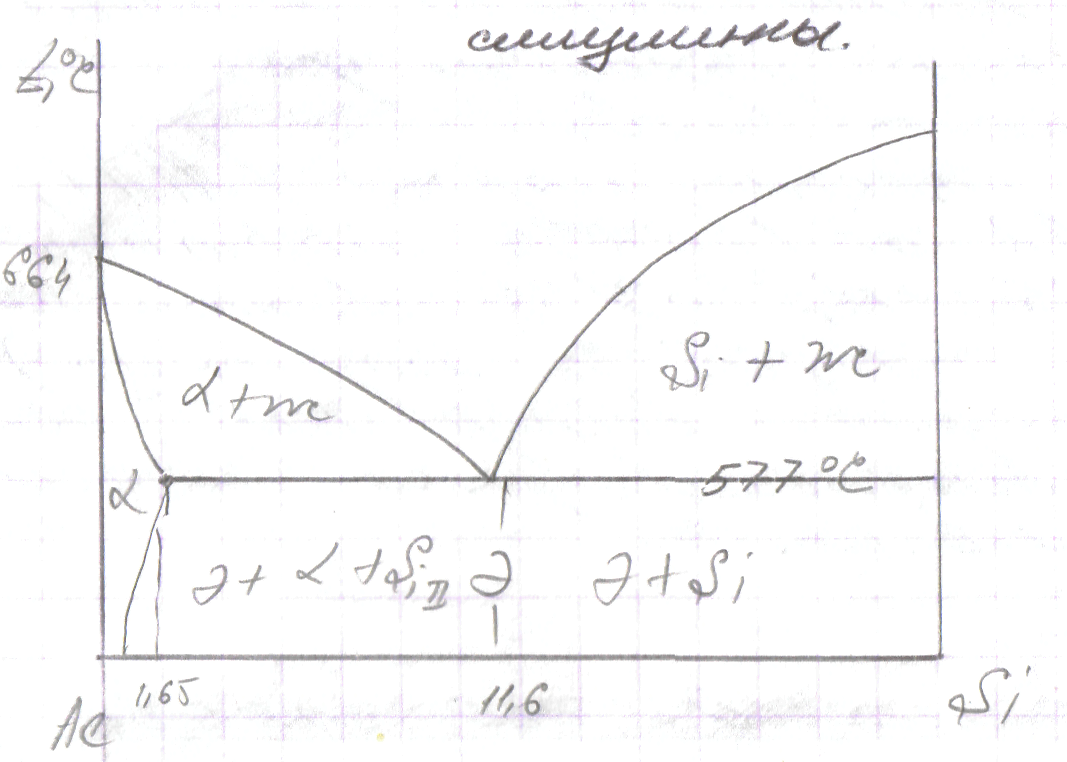 силумины.
t,°C
664
Si + ж
α + ж
577°C
α
Э + α + SiII Э Э + Si
1,65 11,6
Al Si